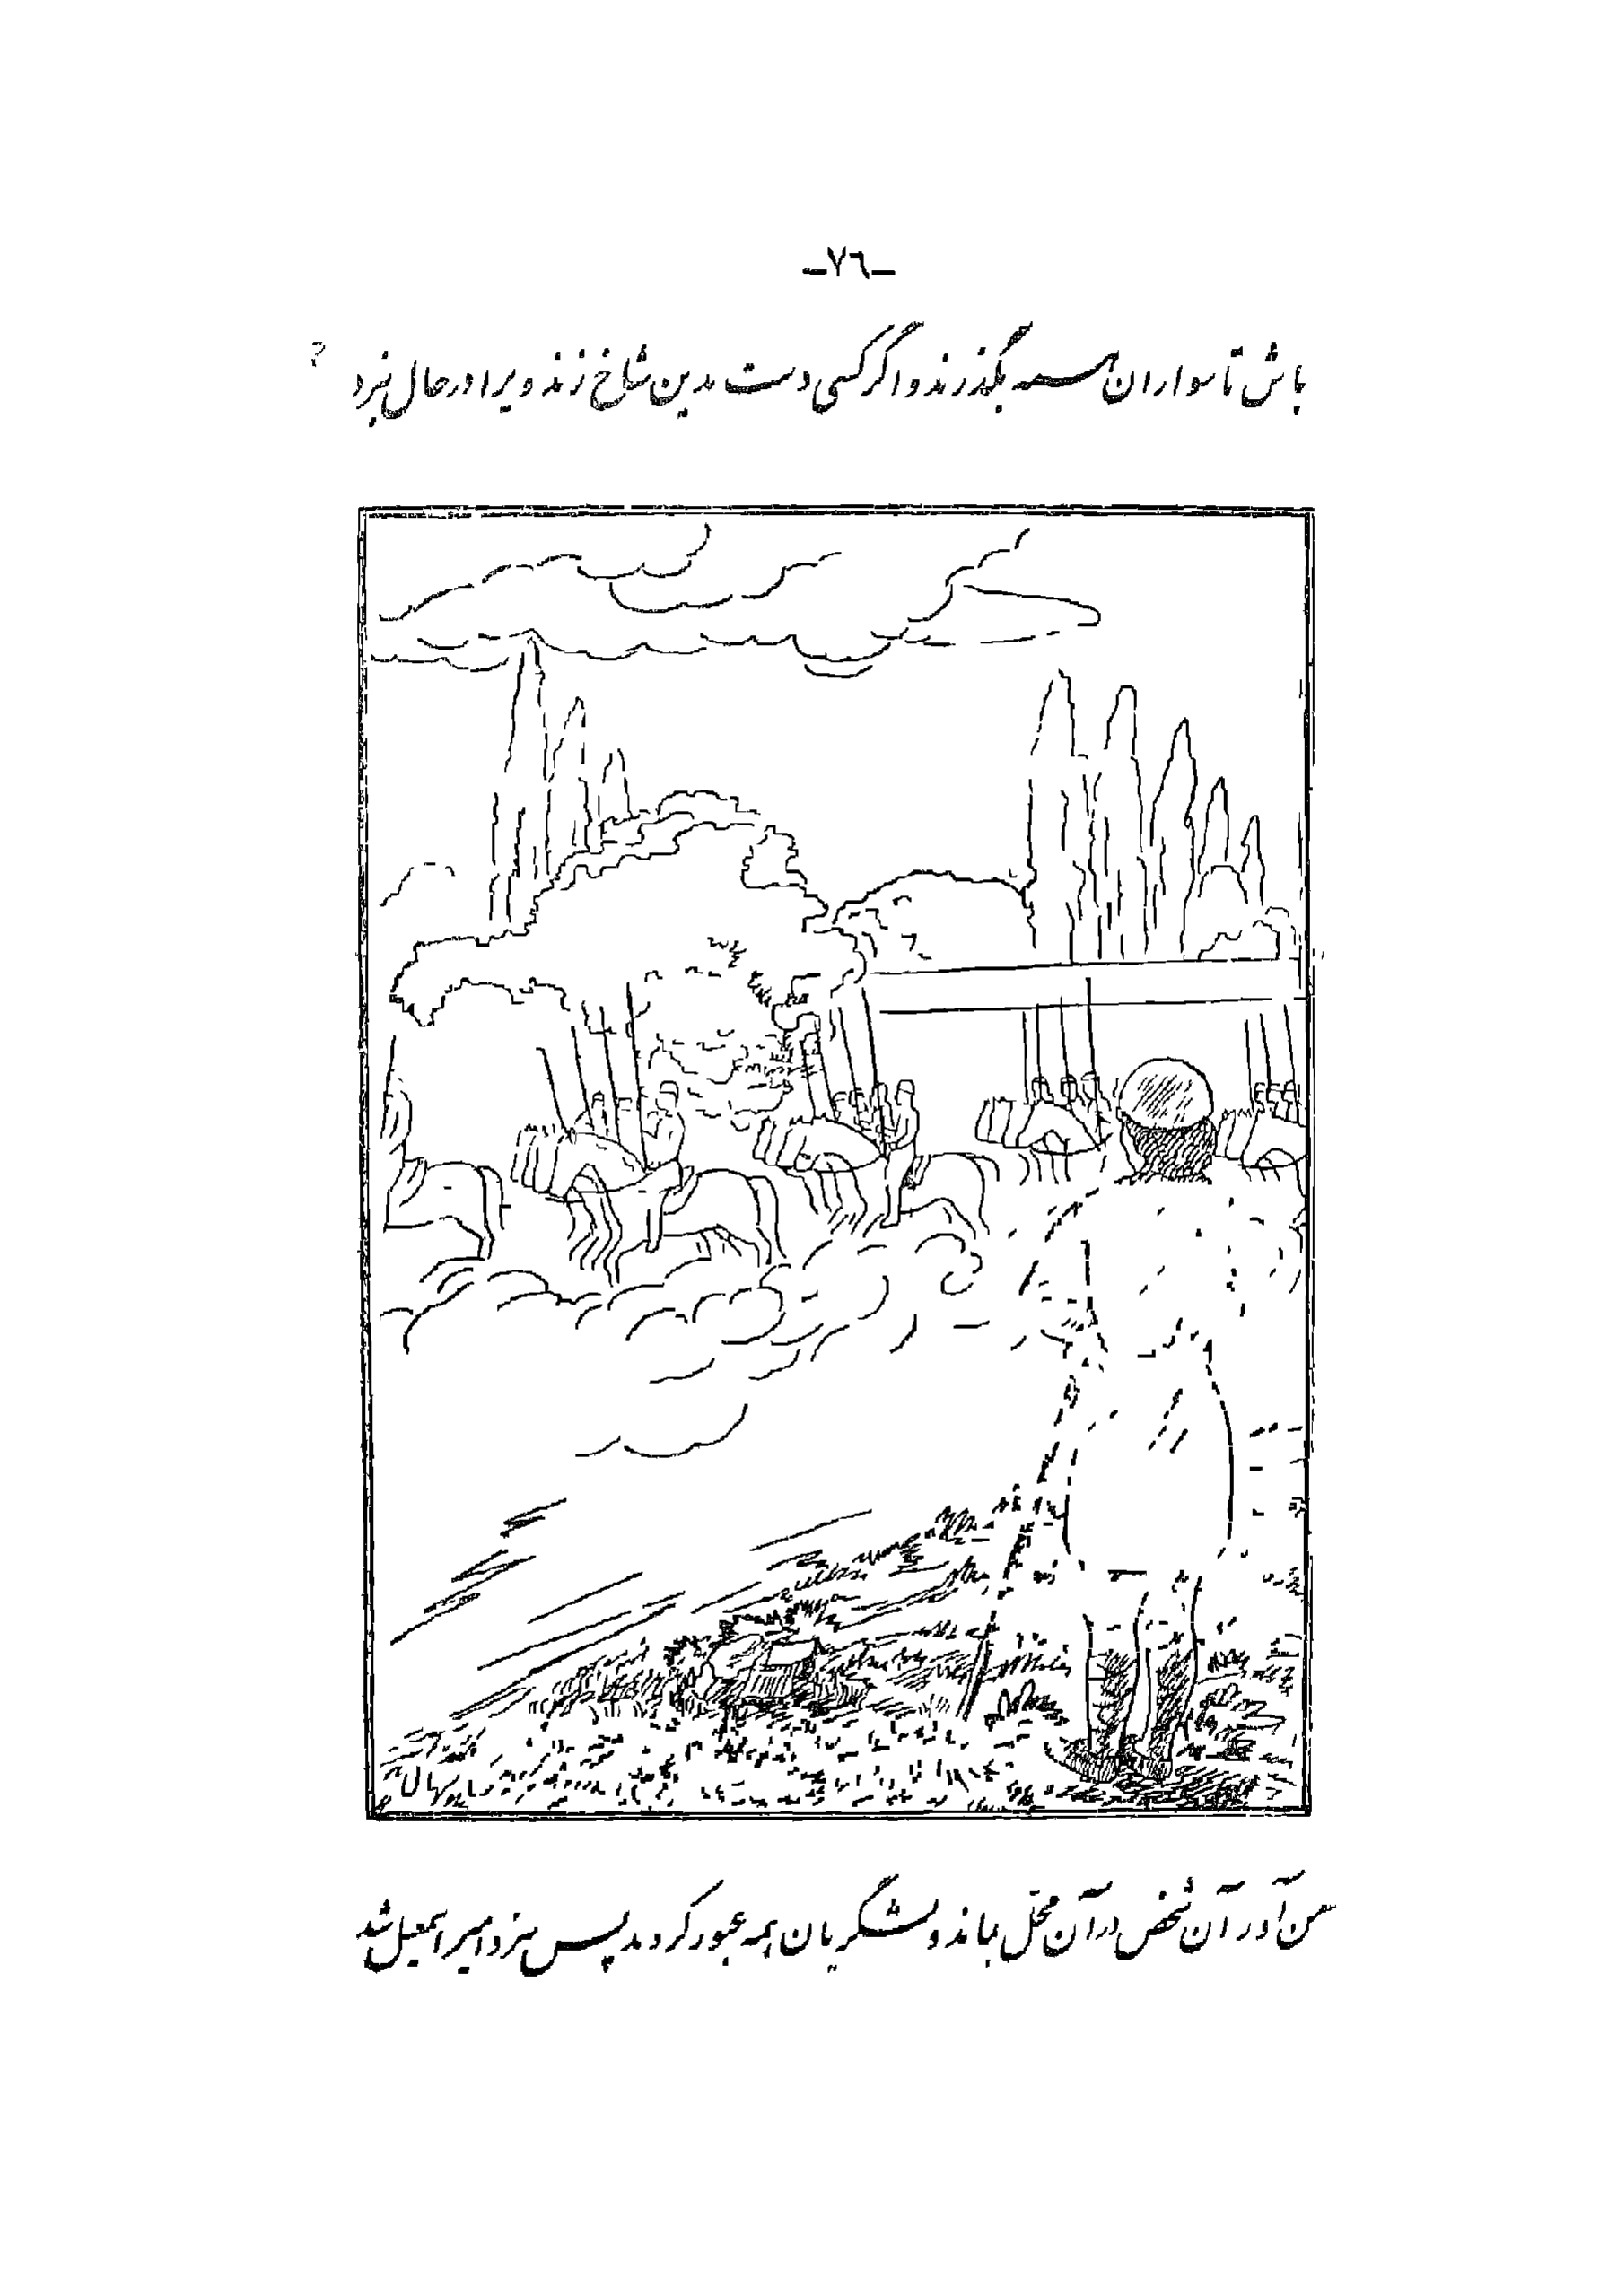 -٧٦-
باش تا سواران همه بگذرند و اگر کسی دست بدین شاخ زند ویرا در حال نزد
من آور آن شخص در آن محل بماند و لشگریان همه عبور کردند پس نزد امیر اسمعیل شد